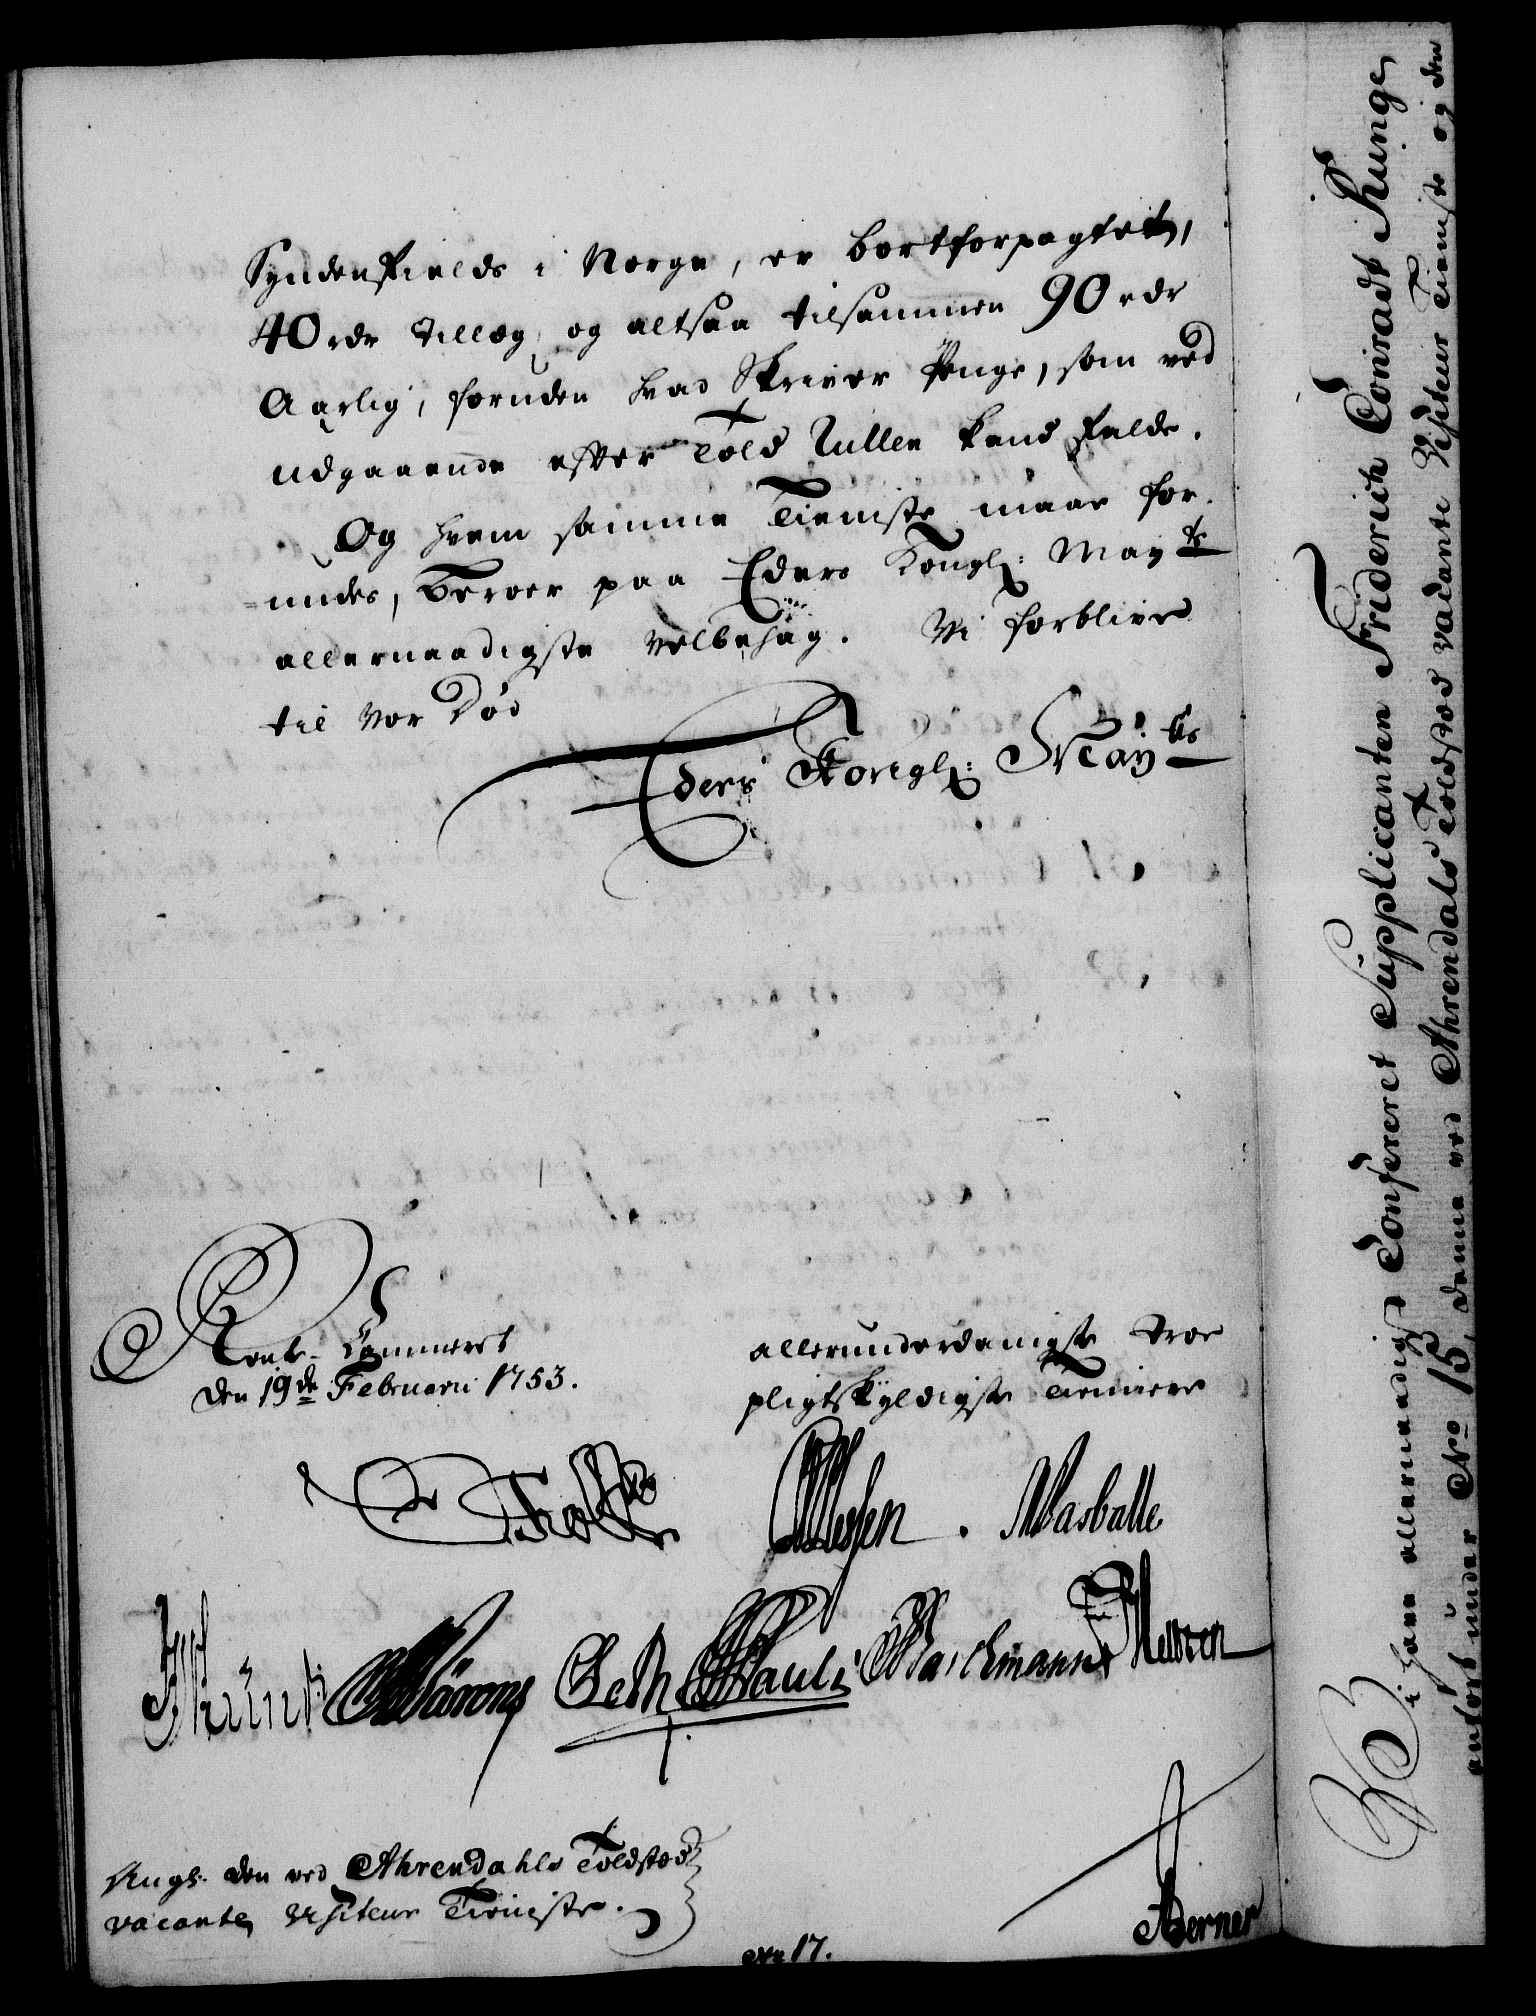 Syndenfields i Norge, er bortforpagtet,
40 rdr Tillæg, og altsaa tilsammen 90 rdr
Aarlig, foruden hvad Skriver Penge, som ved
udgaaende efter Told Rullen kand falde.
Og hvem samme Tieniste maae for-
undes, beroer paa Eders Kongl: May:ts
allernaadigste Velbehag. Vi forblive
til vor Død
Eders Kongl: May:ts
Rente-Kammeret
den 19de Februarii 1753.
allerunderdanigste troe
pligtskyldigste Tiennere
Holst
Wessen. Masballe
Künt Wärons Seth Pauli Barchmann Metzen
Ang: den ved Ahrendahls Toldsted
vacante Visiteur Tieniste.
Berner
No 17.
Vi have allernaadigst Confereret Supplicanten Friderich Conradt Runge,
anført under No 15, denne ved Ahrendals Toldsted vacante Visiteur Tieniste og den